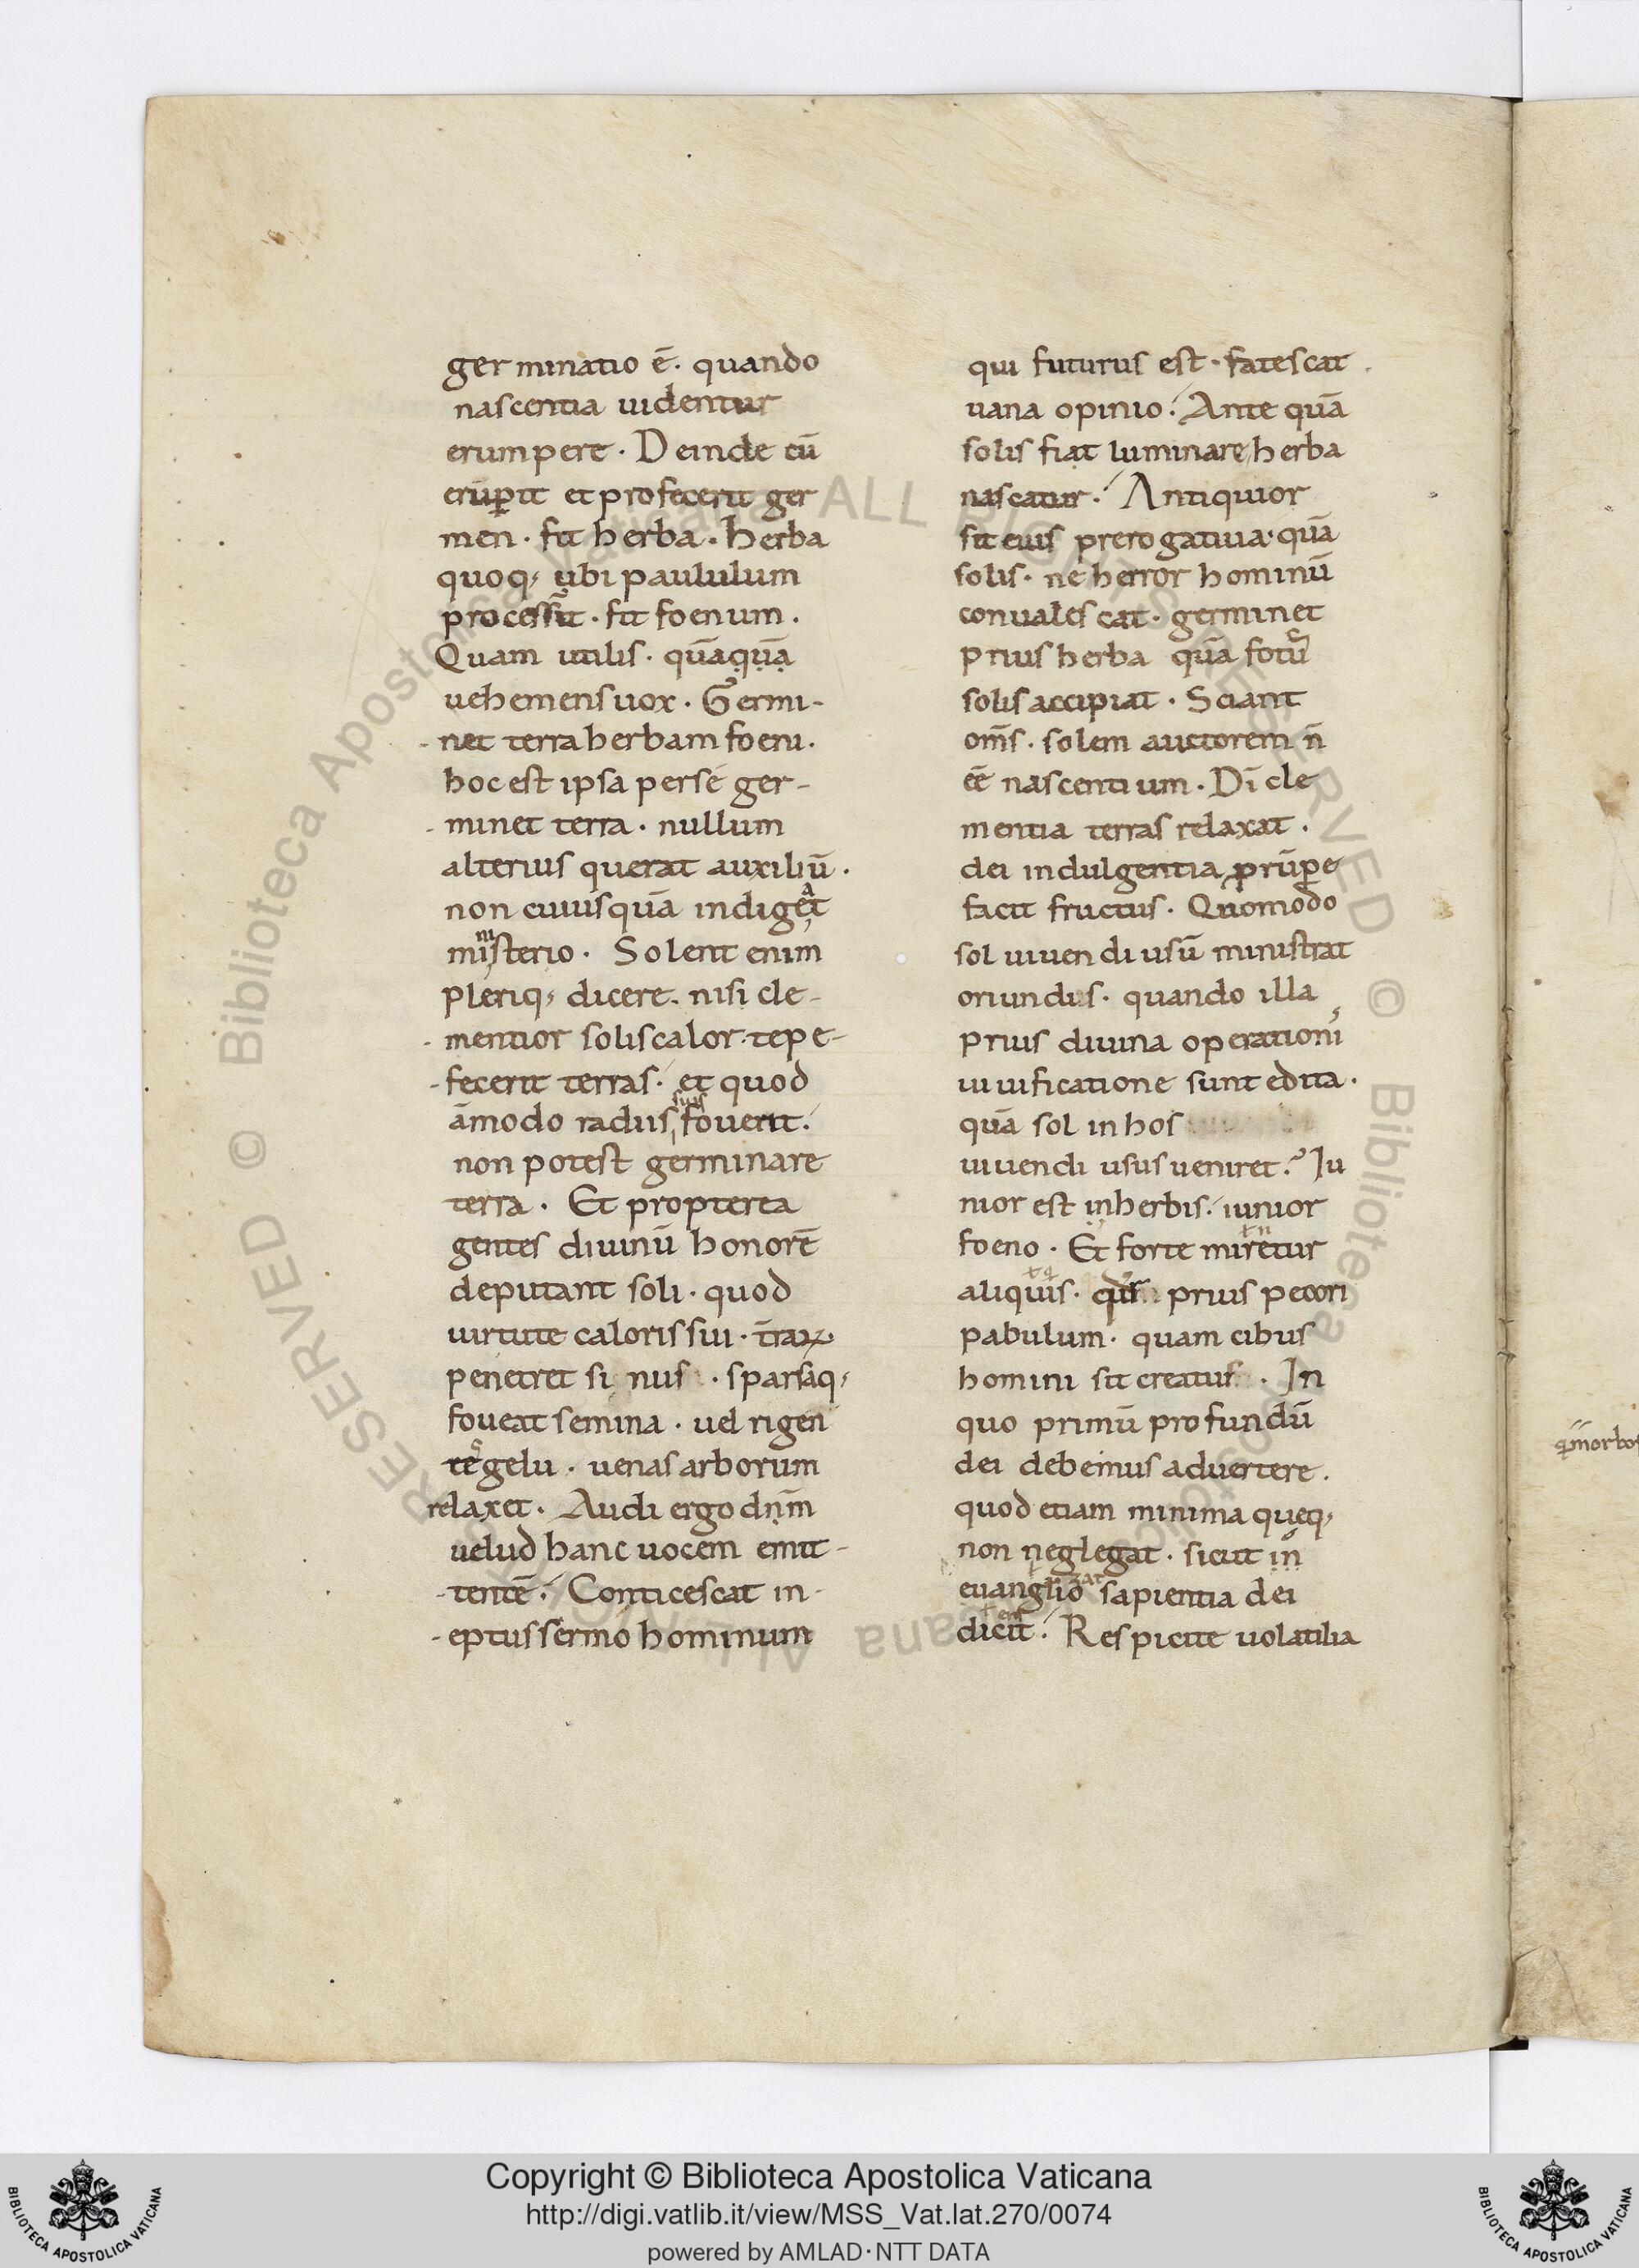 germinatio ē. quando
nascentia uidentur
erumpere. Deinde cū
erūꝑit et profecerit ger
men. fit herba. herba
quoq; ubi paululum
processit. fit foenum.
Quam utilis. quāquā
uehemens uox. Germi-
net terra herbam foeni.
hoc est ipsa per sé ger-
minet terra. nullum
alterius querat auxiliū.
non cuiusquā indigeat
ministerio. Solent enim
pleriq; dicere. nisi cle-
mentior solis calor. tepe-
fecerit terras. et quod
āmodo radiis suis fouerit.
non potest germinare
terra. Et propterea
gentes diuinū honorē
deputant soli. quod
uirtute caloris sui. t̄raꝝ.
penetret sinus. sparsaq;
foueat semina. uel rigen
tes gelu. uenas arborum
relaxet. Audi ergo dn̄m
uelud hanc uocem emit-
tentē. Conticescat in-
eptus sermo hominum
qui futurus est. fatescat
uana opinio. Ante quā
solis fiat luminare, herba
nascatur. Antiquior
sit eius prerogatiua. quā
solis. ne herror hominū
conualescat. germinet
prius herba quā fotū
solis accipiat. Sciant
om̄s. solem auctorem n̄
eē nascentium. Dī cle
mentia terras relaxat.
dei indulgentia prūpe
facit fructus. Quomodo
sol uiuendi usū ministrat
oriundis. quando illa
prius diuina operationi
uiuificatione sunt edita.
quā sol in hos
uiuendi usus ueniret? Iu
nior est in herbis. iunior
foeno. Et forte miretur
aliquis. prius pecori
pabulum. quam cibus
homini sit creatus. In
quo primū profundū
dei debemus aduertere.
quod etiam minima queq;
non neglegat. sicut in
euanglio sapientia dei
dicit. Respicite uolatilia
q̄morbos
© Biblioteca Apostolica Vaticana ALL RIGHTS RESERVED © Biblioteca Apostolica Vaticana ALL RIGHTS RESERVED
BIBLIOTECA APOSTOLICA VATICANA
Copyright © Biblioteca Apostolica Vaticana
http://digi.vatlib.it/view/MSS_Vat.lat.270/0074
powered by AMLAD·NTT DATA
BIBLIOTECA APOSTOLICA VATICANA